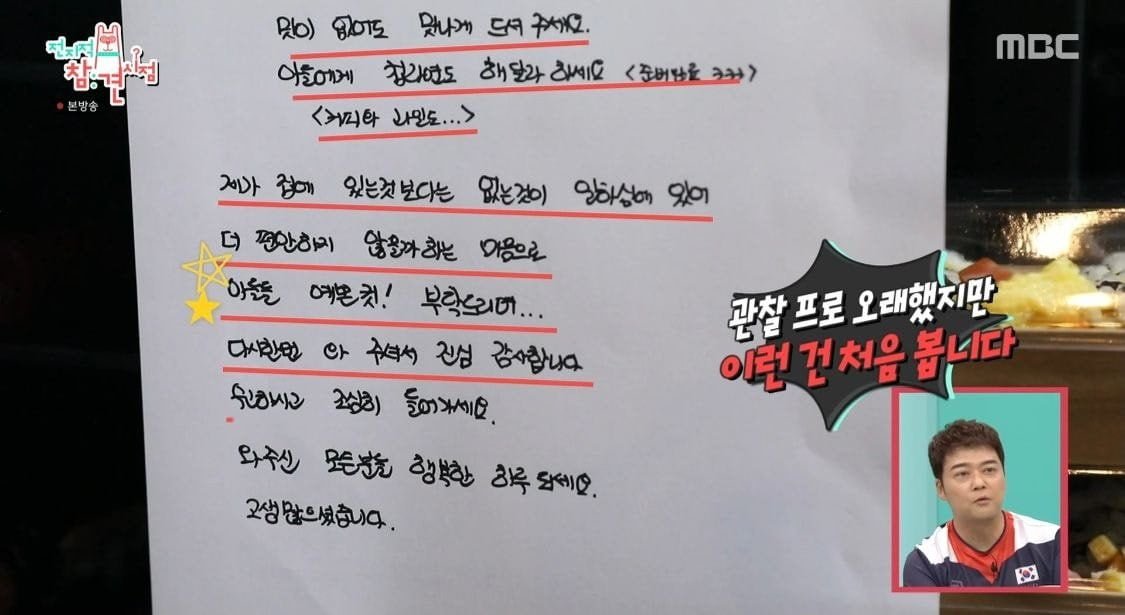 전지적
참견
시점
본방송
MBC
맛이 없어도 맛나게 드셔 주세요.
아들에게 청라면도 해달라 하세요 <준비완료 ㅋㅋ>
<커피와 과일도...>
제가 집에 있는것 보다는 없는것이 일하심에 있어
더 편안하지 않을까하는 마음으로
아들들 예쁜 컷! 부탁드리며...
다시한번 와 주셔서 진심 감사합니다
하시고 조심히 들어가세요.
와주신 모든분들 행복한 하루 되세요.
고생많으셨습니다.
관찰 프로 오래했지만
이런 건 처음 봅니다